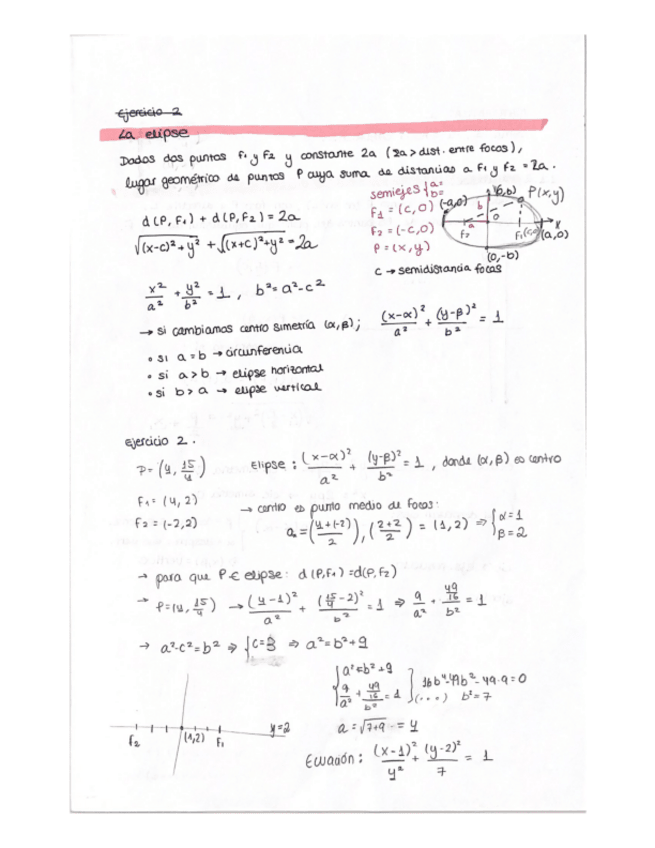 Ejercicio 2
La elipse
Dados dos puntos F₁ y F₂ y constante 2a (2a > dist. entre focos),
lugar geométrico de puntos P cuya suma de distancias a F₁ y F₂ = 2a.
semiejes { a= b=
F₁ = (c,0)
F₂ = (-c,0)
P = (x,y)
(-a,0)
(0,b)
P(x,y)
b
a
0
F₂
F₁(c,0)
x
(a,0)
(0,-b)
c → semidistancia focos
d(P,F₁) + d(P,F₂) = 2a
√(x-c)²+y² + √(x+c)²+y² = 2a
x²/a² + y²/b² = 1 , b² = a²-c²
→ si cambiamos centro simetría (α,β); (x-α)²/a² + (y-β)²/b² = 1
• si a = b → circunferencia
• si a > b → elipse horizontal
• si b > a → elipse vertical
ejercicio 2.
P = (4, 15/4) Elipse: (x-α)²/a² + (y-β)²/b² = 1 , donde (α,β) es centro
F₁ = (4,2)
→ centro es punto medio de focos:
F₂ = (-2,2)
= (4+(-2)/2), (2+2/2) = (1,2) ⇒ { α=1 β=2
→ para que P ∈ elipse: d(P,F₁) = d(P,F₂)
→ P = (4, 15/4) → (4-1)²/a² + (15/4-2)²/b² = 1 ⇒ 9/a² + 49/16/b² = 1
→ a²-c² = b² ⇒ { c=3 ⇒ a² = b²+9
{ a² = b²+9
9/a² + 49/16/b² = 1 } 16b⁴-49b²-49·9=0
(...) b²=7
a = √7+9 = 4
F₂ (1,2) F₁ y=2
Ecuación: (x-1)²/4² + (y-2)²/7 = 1